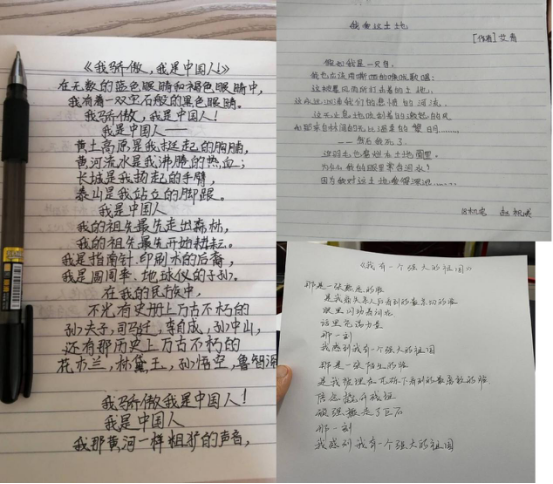 《我骄傲，我是中国人》
在无数的蓝色眼睛和褐色眼睛中，
我有着一双宝石般的黑色眼睛。
我骄傲，我是中国人！
我是中国人——
黄土高原是我挺起的胸脯，
黄河流水是我沸腾的热血；
长城是我扬起的手臂，
泰山是我站立的脚跟。
我是中国人
我的祖先最先走出森林，
我的祖先最先开始耕耘。
我是指南针、印刷术的后裔，
我是圆周率、地球仪的子孙。
在我的民族中，
不光有史册上万古不朽的
孙夫子，司马迁，李自成，孙中山，
还有那历史上万古不朽的
花木兰，林黛玉，孙悟空，鲁智深
我骄傲我是中国人！
我是中国人
我那黄河一样粗犷的声音，
我爱这土地
[作者] 艾青
假如我是一只鸟，
我也应该用嘶哑的喉咙歌唱：
这被暴风雨所打击着的土地，
这永远汹涌着我们的悲愤的河流，
这无止息地吹刮着的激怒的风
和那来自林间的无比温柔的黎明……
——然后我死了，
连羽毛也腐烂在土地里面。
为什么我的眼里常含泪水？
因为我对这土地爱得深沉……
《我有一个强大的祖国》
那是一张熟悉的脸
那一刻
我感到我有一个强大的祖国
那是一张陌生的脸
那一刻
我感到我有一个强大的祖国